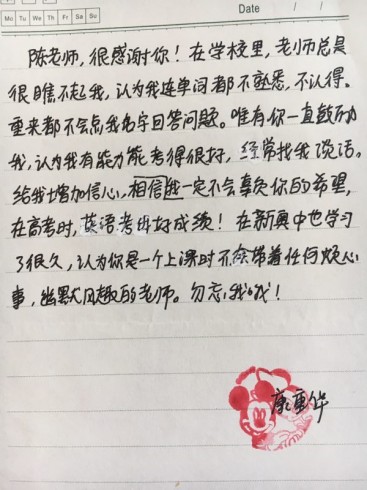 Mo Tu We Th Fr Sa Su
Date / /
陈老师，很感谢你！在学校里，老师总是
很瞧不起我，认为我连单词都不熟悉，不认得。
重来都不会点我名字回答问题。唯有你一直鼓励
我，认为我有能力能考得很好，经常找我谈话。
给我增加信心，相信我一定不会辜负你的希望，
在高考时，英语考出好成绩！在新奥中也学习
了很久，认为你是一个上课时不会带着任何烦心
事，幽默风趣的老师。勿忘我哦！
康重华